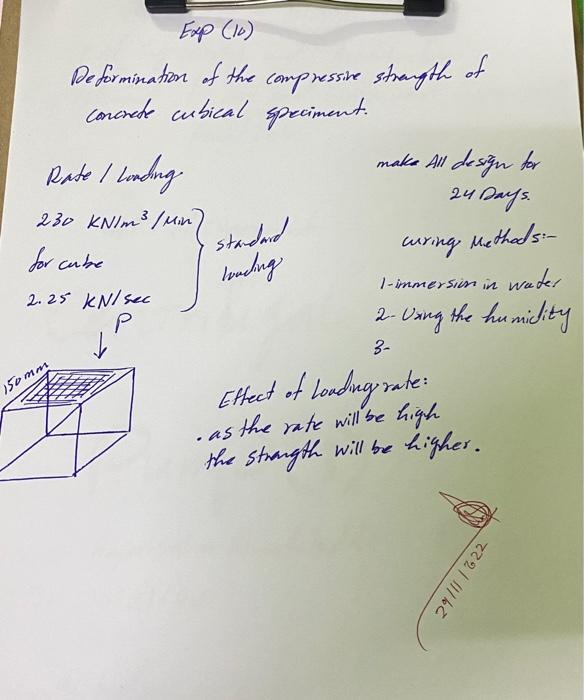 Exp (10)
Determination of the compressive strength of
concrete cubical speciment.
Rate / Loading
230 KN/m³/Min
for cube
2.25 KN/sec
standard
loading
make All design for
24 Days.
curing Methods:-
1-immersion in water
2- Using the humidity
3-
P
150mm
Effect of Loading rate:
. as the rate will be high
the strength will be higher.
29/11/2022